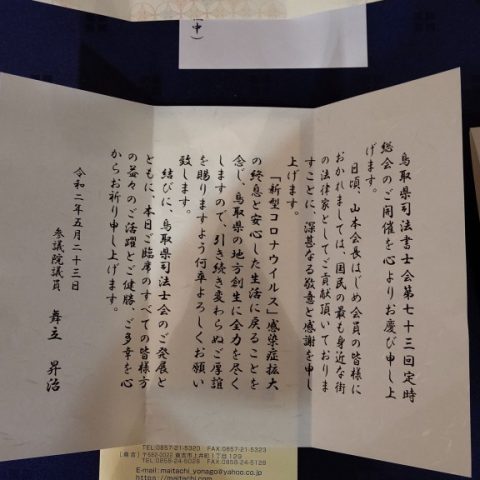 (中)
鳥取県司法書士会第七十三回定時
総会のご開催を心よりお慶び申し上
げます。
日頃、山本会長はじめ会員の皆様に
おかれましては、国民の最も身近な街
の法律家としてご貢献頂いておりま
すことに、深甚なる敬意と感謝を申し
上げます。
「新型コロナウイルス」感染症拡大
の終息と安心した生活に戻ることを
念じ、鳥取県の地方創生に全力を尽く
しますので、引き続き変わらぬご厚誼
を賜りますよう何卒よろしくお願い
致します。
結びに、鳥取県司法士会のご発展と
ともに、本日ご臨席のすべての皆様方
の益々のご活躍とご健勝、ご多幸を心
からお祈り申し上げます。
令和二年五月二十三日
参議院議員 舞立 昇治
TEL:0857-21-5320 FAX:0857-21-5323
[倉吉] 〒682-0022 倉吉市上井町1丁目129
TEL:0858-24-5029 FAX:0858-24-5128
E-mail:maitachi_yonago@yahoo.co.jp
https://maitachi.com